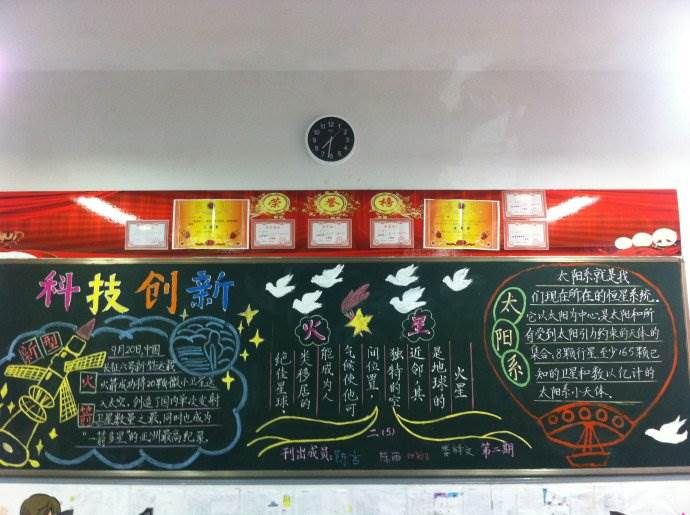 荣誉榜
科技创新
新型
火箭
9月20日,中国
长征六号新型运载
火箭成功将20颗微小卫星送
入太空,创造了国内单次发射
卫星数量之最,同时也成为
“一箭多星”的亚洲最高纪录.
火星
火星
是地球的
近邻,其
独特的空
间位置,
气候使他可
能成为人
类移居的
绝佳星球.
太阳系
太阳系就是我
们现在所在的恒星系统.
它以太阳为中心,是太阳和所
有受到太阳引力约束的天体的
集合.8颗行星至少165颗已
知的卫星和数以亿计的
太阳系小天体.
二(5)
刊出成员:
第二期